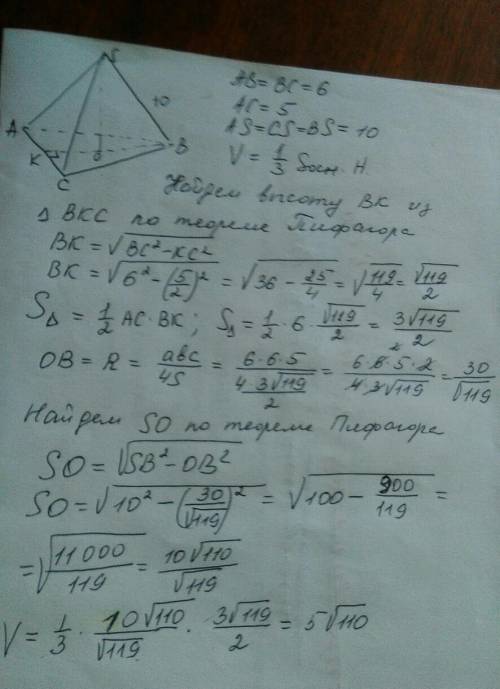 S
10
A
B
K
O
C
AB = BC = 6
AC = 5
AS = CS = BS = 10
V = 1/3 Sосн. H.
Найдем высоту BK из
Δ BKC по теореме Пифагора
BK = √(BC² - KC²)
BK = √(6² - (5/2)²) = √(36 - 25/4) = √(119/4) = √119/2
SΔ = 1/2 AC · BK; SΔ = 1/2 · 6 · √119/2 = 3√119/2
OB = R = abc/4S = 6·6·5/(4·3√119/2) = 6·6·5·2/(4·3√119) = 30/√119
Найдем SO по теореме Пифагора
SO = √(SB² - OB²)
SO = √(10² - (30/√119)²) = √(100 - 900/119) =
= √(11000/119) = 10√110/√119
V = 1/3 · 10√110/√119 · 3√119/2 = 5√110